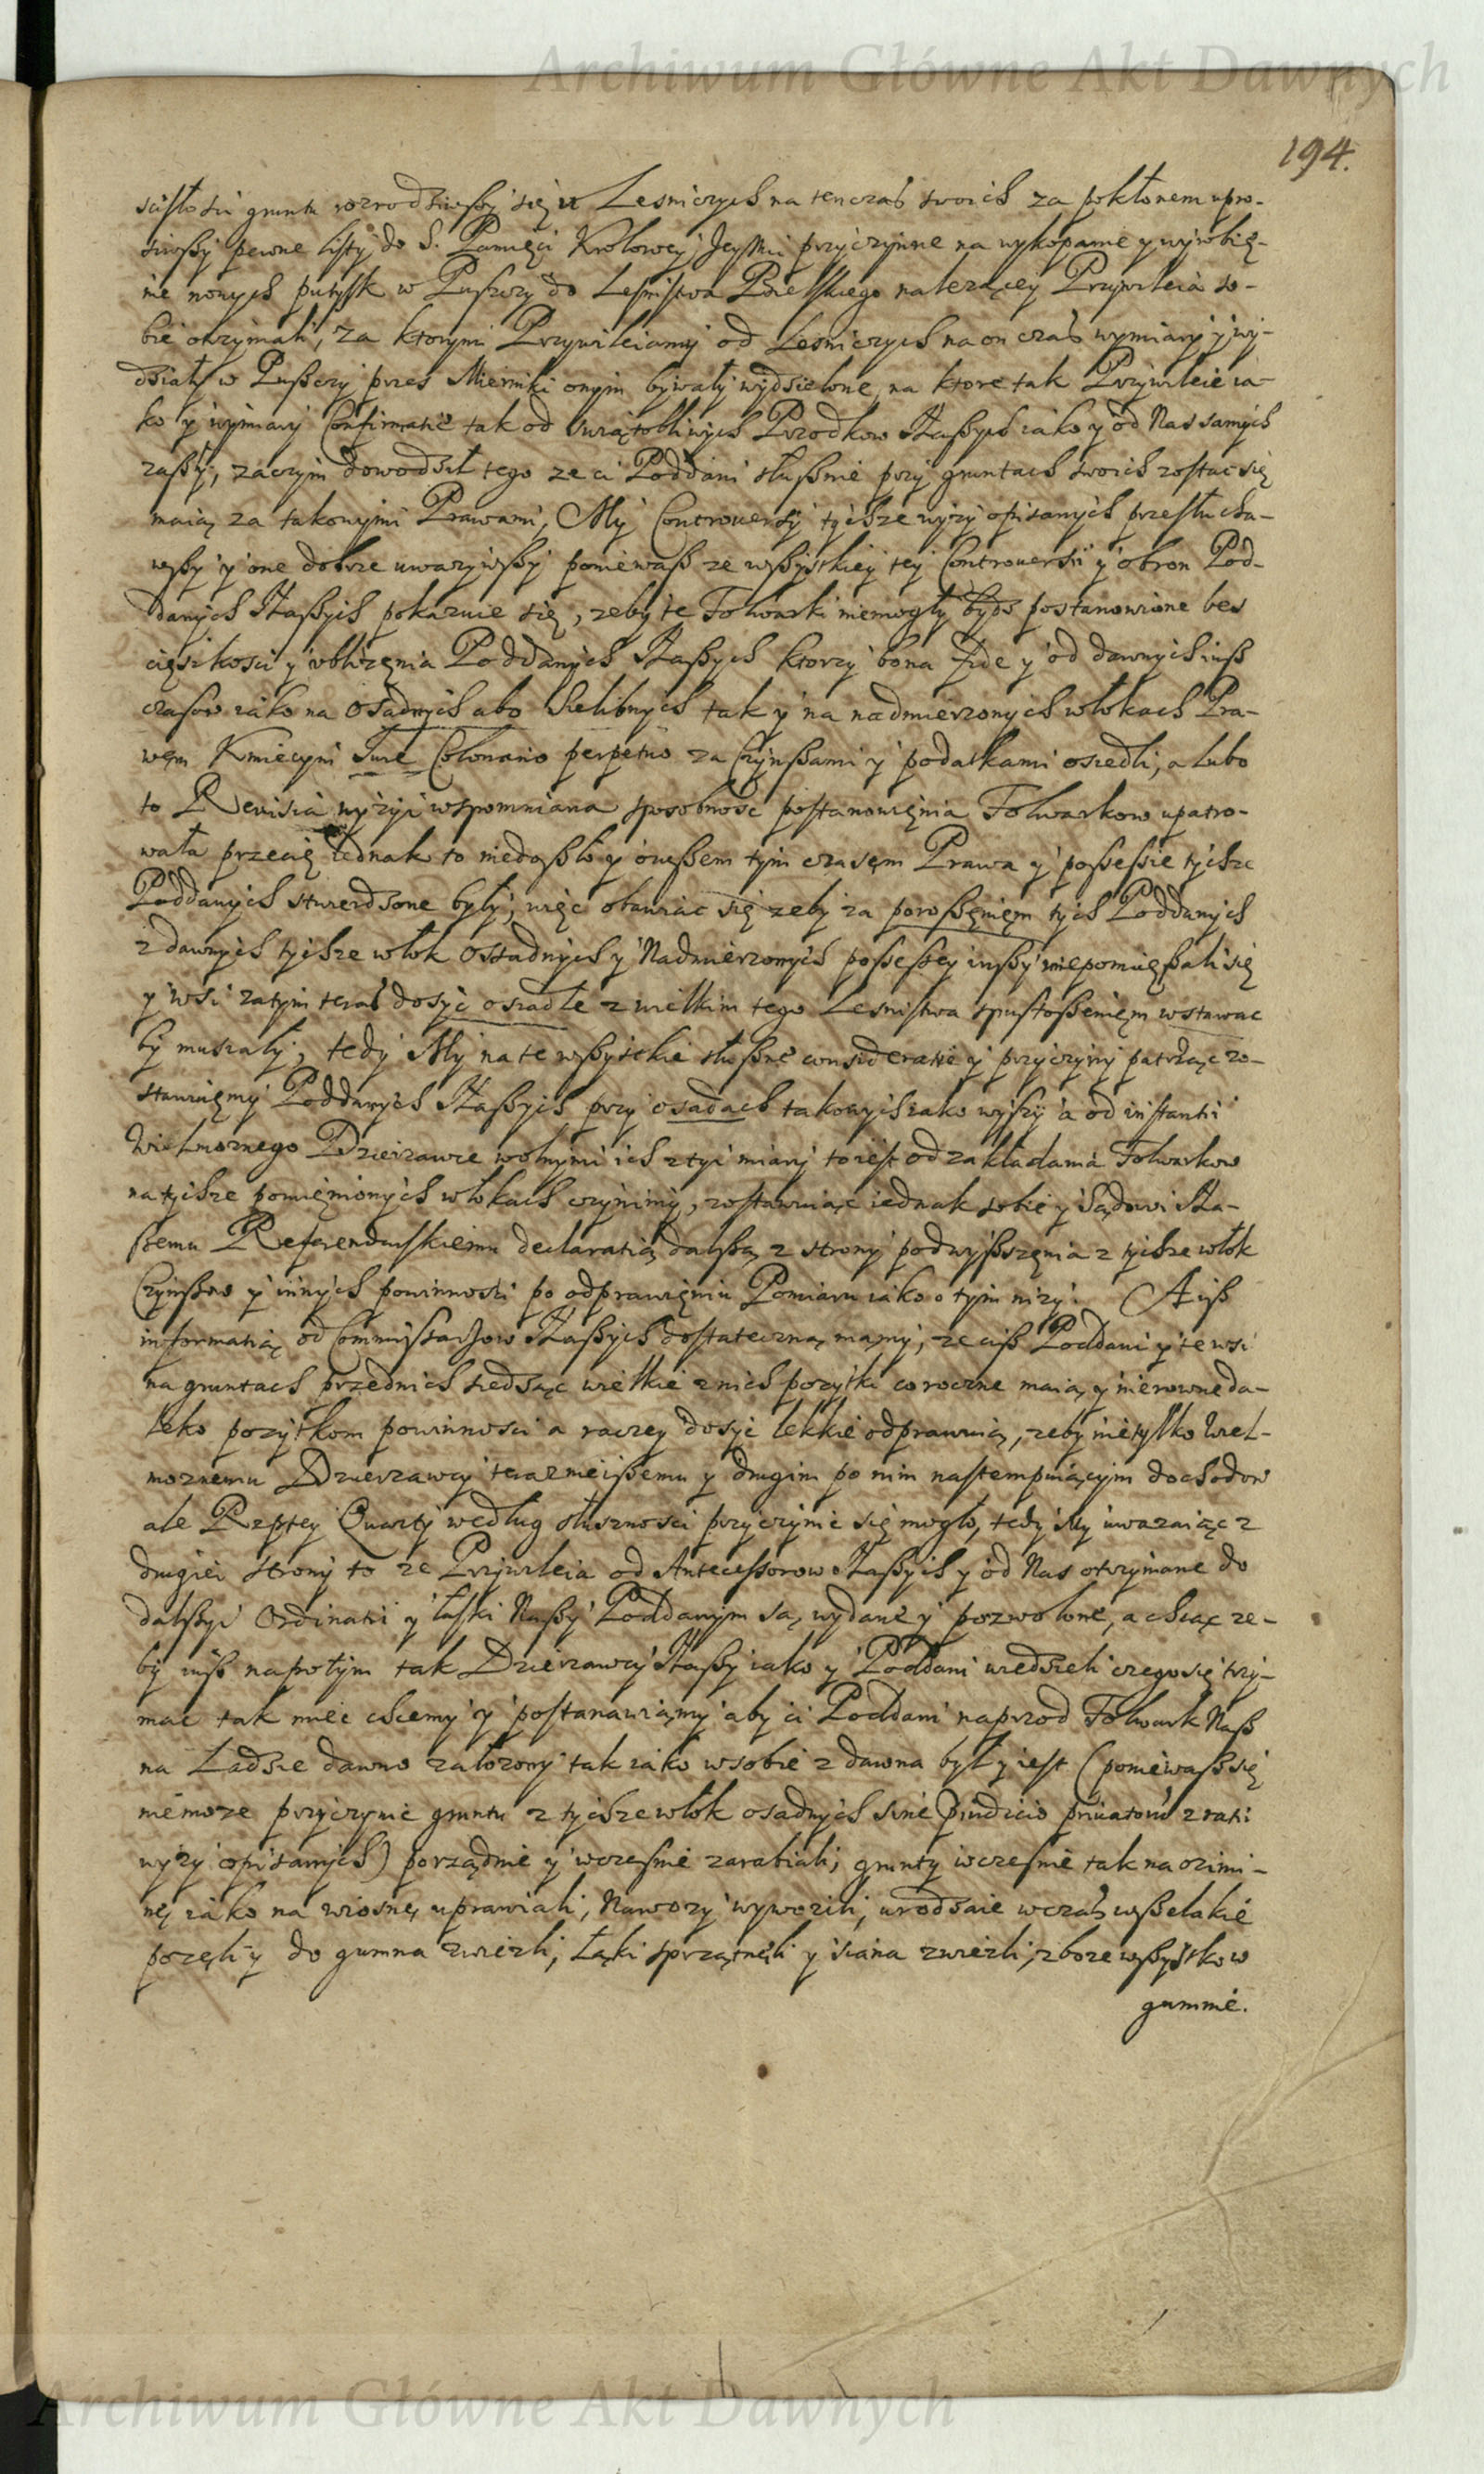 Archiwum Główne Akt Dawnych
194.
scisłosci gruntu rozrodziwszy się u Lesniczych na tenczas swoich za pokłonem upro-
siwszy pewne listy do S. Pamięci Krolowey Jeymci przyczynne na wykopanie y wyrobię-
nie nowych pustysk w Puszczy do Lesnistwa Bielskiego nalezącey Przywileia so-
bie otrzymali, za ktorymi Przywileiamy od Lesniczych na on czas wymiary y wy-
działy w Puszczy przez Mierniki onym bywały wydzielone, na ktore tak Przywileie ia-
ko y wymiary Confirmatie tak od swiątobliwych Przodkow Naszych iako y od Nas samych
zaszły, zaczym dowodził tego ze ci Poddani słusznie przy gruntach swoich zostac się
maią za takowymi Prawami, My Controuersÿ tychze wyzy opisanych przesłucha-
wszy y one dobrze uwazywszy poniewasz ze wszystkiey tey Controuersii y obron Pod-
danych Naszych pokazuie się, zeby te Folwarki niemogły bydz postanowione bez
cięszkosci y ubliżęnia Poddanych Naszych ktorzy bona fide y od dawnych iusz
czasow iako na osadnych abo Sielibnych tak y na nadmierzonych włokach Pra-
węm Kmiecym Jure Colonario perpetuo za Czynszami y podatkami osiedli, a lubo
to Rewisia wyzyi wspomniana sposobnosc postanowięnia Folwarkow upatro-
wała przecię iednak to niedoszło y owszem tym czasęm Prawa y possessie tychze
Poddanych stwierdzone były, więc obawiac się zeby za poroszęnięm tych Poddanych
z dawnych tychze włok ossadnych y Nadmierzonych possessey inszy niepomięszali się
y wsi zatym teraz dosyc osiadłe z wielkim tego Lesnistwa spustoszenięm wstawac
by musiały, tedy My na te wszystkie słuszne consideratie y przyczyny patrząc zo-
stawuięmy Poddanych Naszych przy osadach takowych iako wyszy a od instantii
Wielmoznego Dzierzawce wolnymi ich z tyi miary toiest od zakładania Folwarkow
na tychze pomięnionych włokach czynimy, zostawuiąc iednak sobie y Sądowi Na-
szemu Referendarskiemu declaratią dalszą z strony podwyszszęnia z tychze włok
Czynszow y innych powinnosci po odprawięniu Pomiaru iako o tym nizyi. A isz
informatią od Commissarzow Naszych dostateczną mamy, ze cisz Poddani y te wsi
na gruntach przednich siedząc wielkie z nich pozytki coroczne maią y nierowne da-
leko pozytkom powinnosci a raczey dosyc lekkie odprawuią, zeby nietylko Wiel-
moznemu Dzierzawcy terazneiszemu y drugim po nim nastempuiącym dochodow
ale Rzptey Quarty według słusznosci przyczynic się mogło, tedy My uwazaiąc z
drugiei strony to ze Przywileia od Antecessorow Naszych y od Nas otrzymane do
dalszyi Ordinatii y łaski Naszyi Poddanym są wydane y pozwolone, a chcąc ze-
by iusz napotym tak Dzierzawcy Naszy iako y Poddani wiedzieli czego się trzy-
mac tak miec chcemy y postanawiamy aby ci Poddani naprzod Folwark Nasz
na Ładzie dawno załozony tak iako wsobie z dawna był y iest (poniewasz się
niemoze przyczynic gruntu z tychze włok osadnych sine praeiudicio priuatorum z ratii
wyzy opisanych) porządnie y wczesnie zarabiali, grunty wczesnie tak na ozimi-
nę iako na wiosnę uprawiali, Nawozy wywozili, urodzaie wczas wszelakie
pozęli y do gumna zwiezli, łąki sprzątneli y siana zwiezli, zboze wszystko w
gumnie.
Archiwum Główne Akt Dawnych